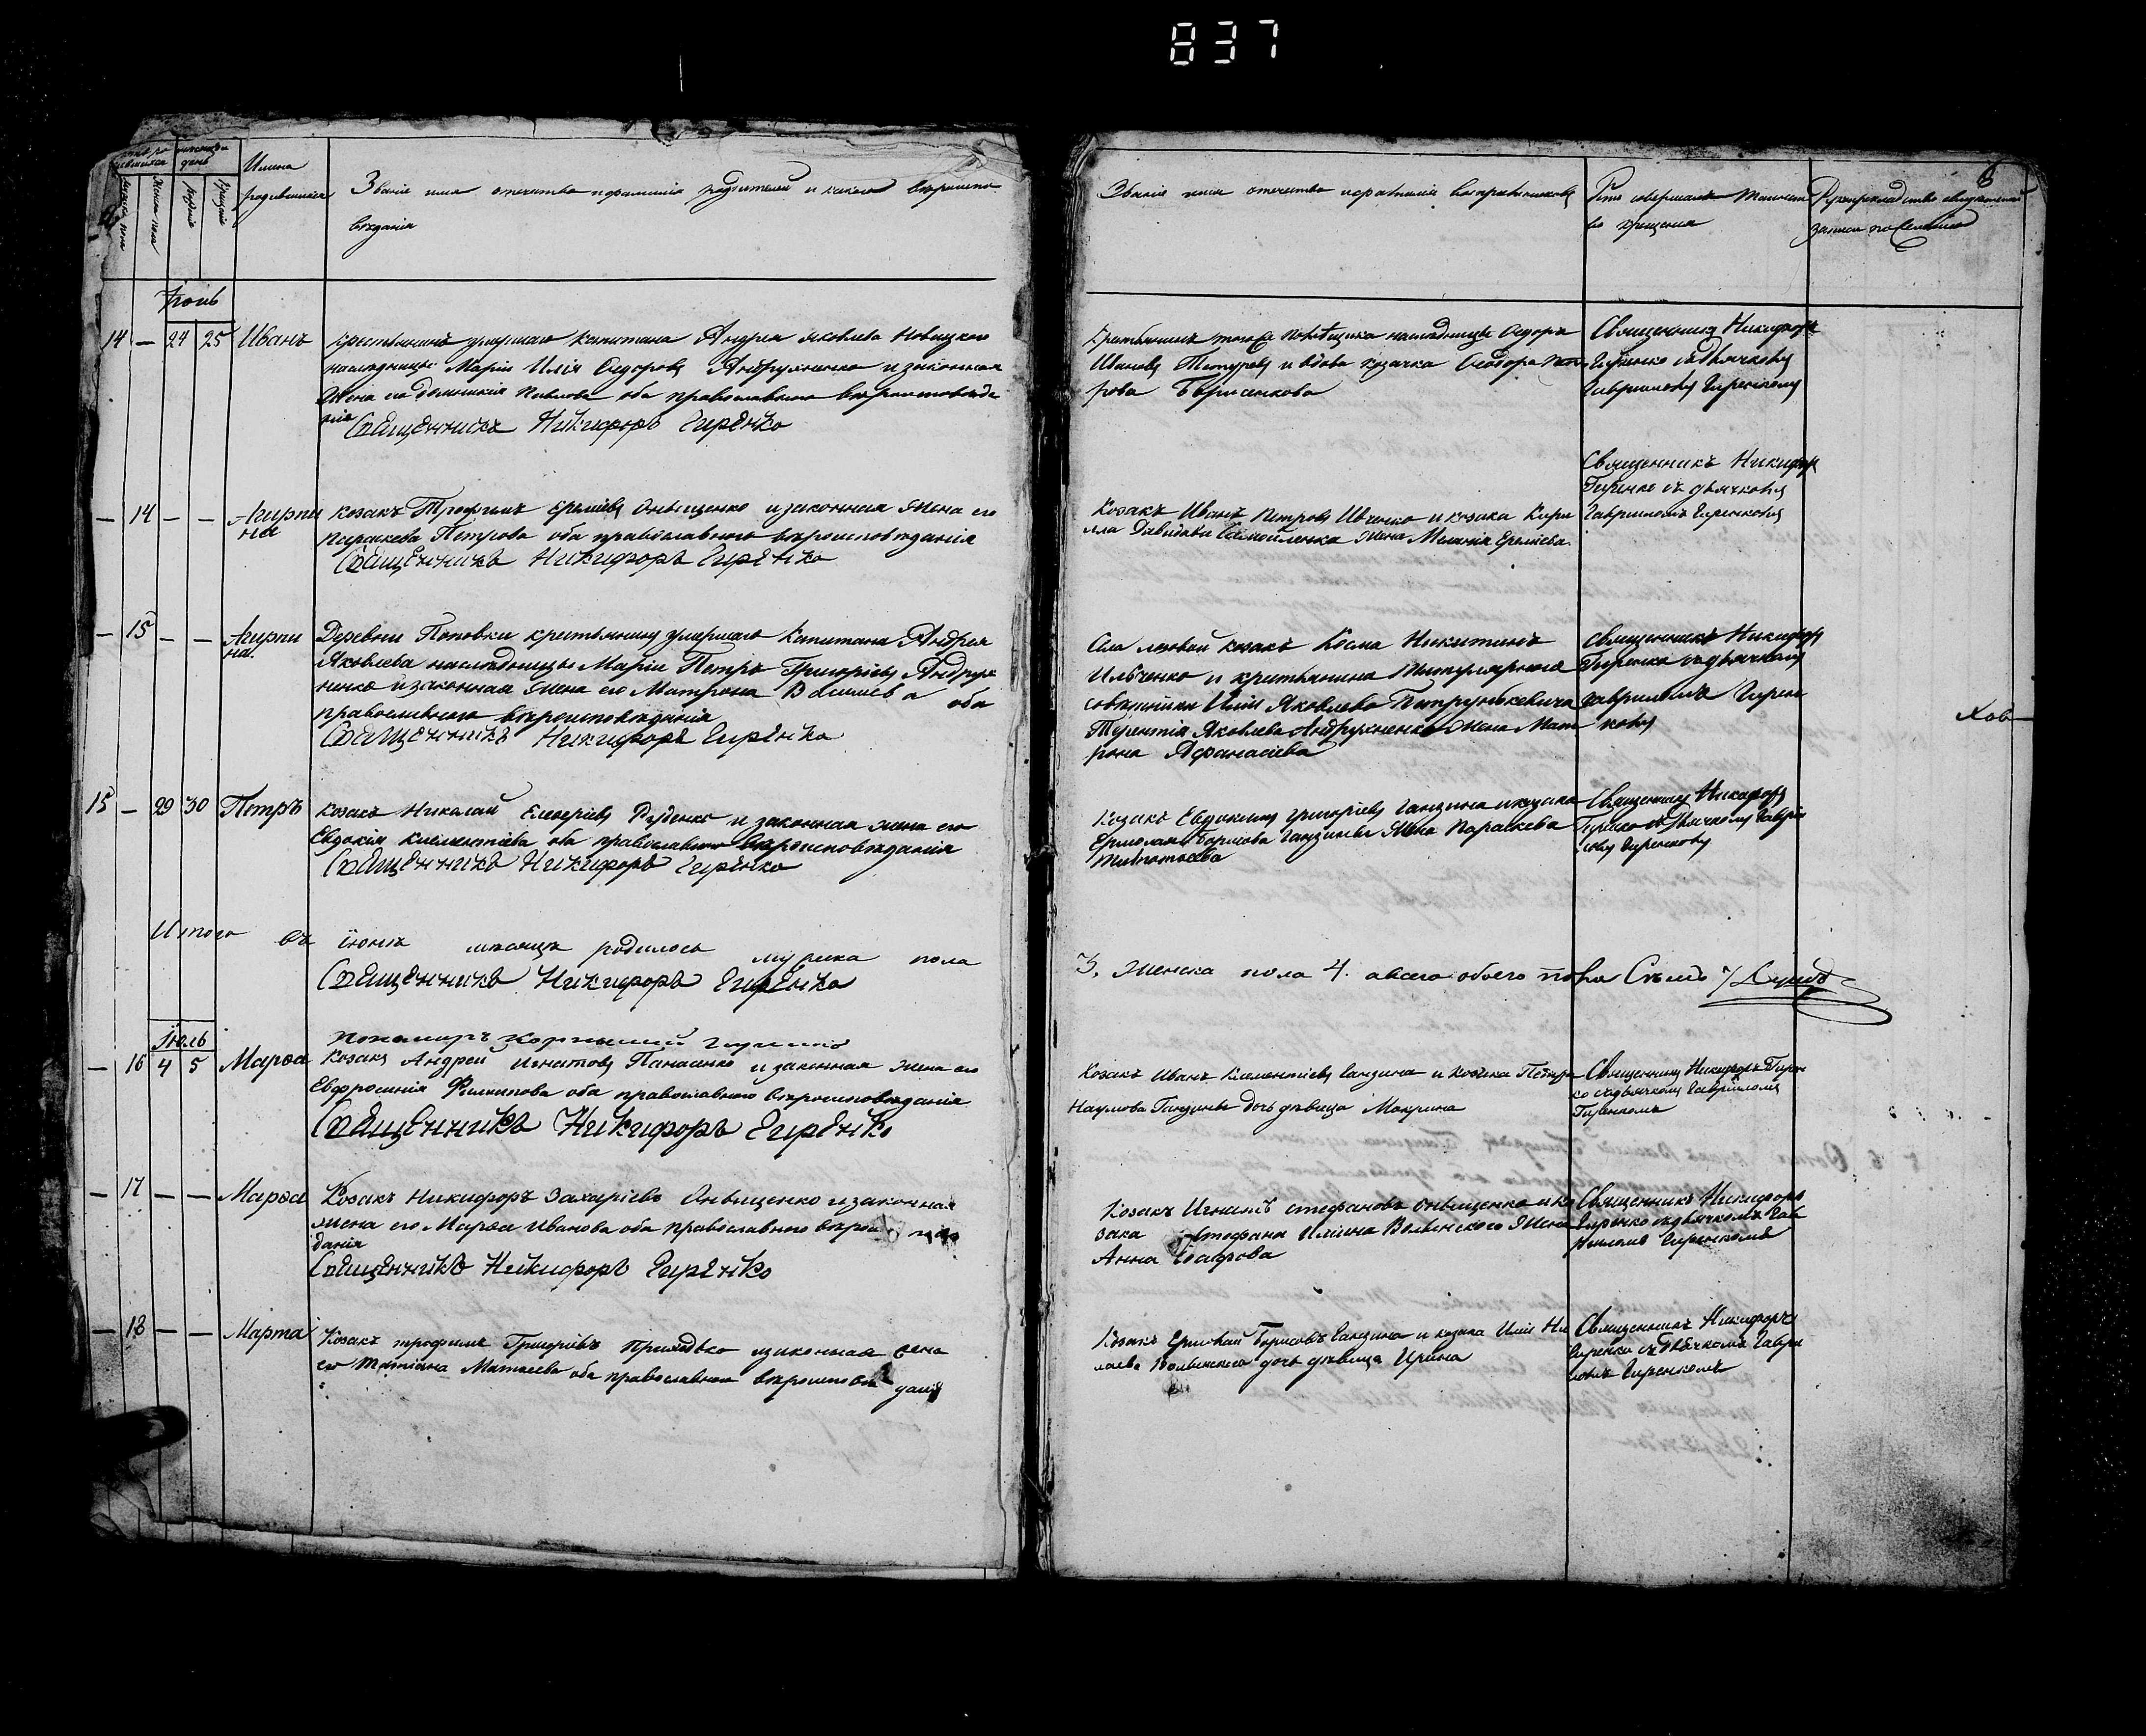 837
6
Имена
родившихся
Званіе имя отечество и фамилія родителей и какого вѣроиспо
вѣданія
Званіе имя отечество и фамилія воспріемниковъ
Кто совершалъ таинст
во крещенія
Рукоприкладство свидѣтелей
записи по желанію
Іюнь
14 — 24 25 Иванъ
крестьянинъ умершаго капитана Андрея Яковлева Новицкого
наслѣдницы Маріи Илія Ѳедоровъ Андрухненко и законная
жена его Домникія Павлова оба православнаго вѣроисповѣда
нія
Священникъ Никифоръ Гиренко
Крестьянинъ наслѣдницы Ѳедоръ
Ивановъ и вдова козачка Ѳеодора
рова Борисенкова
Священникъ Никифоръ
Гиренко съ дьячкомъ
Гавриломъ Гиренкомъ
— 14 — — Агирпи
на
козакъ Трофимъ Еремѣевъ Онѣщенко и законная жена его
Параскева Петрова оба православнаго вѣроисповѣданія
Священникъ Никифоръ Гиренко
Козакъ Иванъ Петровъ Ивченко и козака Кири
лла Давидова Самойленка жена Меланія Еремѣева
Священникъ Никифоръ
Гиренко съ дьячкомъ
Гавриломъ Гиренкомъ
— 15 — — Агирпи
на
Деревни Поповки крестьянинъ умершаго Капитана Андрея
Яковлева наслѣдницы Маріи Петръ Григоріевъ Андрух
ненко и законная жена его Матрона Василіева оба
православнаго вѣроисповѣданія
Священникъ Никифоръ Гиренко
козакъ Косма Никитинъ
Ильченко и крестьянина титулярнаго
совѣтника Иліи Яковлева Петрункевича
Терентія Яковлева Андрухненка жена Мат
рона Афанасіева
Священникъ Никифоръ
Гиренко съ дьячкомъ
Гавриломъ Гирен
комъ
15 — 29 30 Петръ
козакъ Николай Елеверіевъ Руденко и законная жена его
Евдокія Климентіева оба православнаго вѣроисповѣданія
Священникъ Никифоръ Гиренко
Козакъ Евдокимъ Григоріевъ Ганзина и козака
Ермолая Борисова Ганзины жена Параскева
Священникъ Никифоръ
Гиренко съ дьячкомъ Гаври
ломъ Гиренкомъ
Итого въ іюнѣ мѣсяцѣ родилось мужска пола
Священникъ Никифоръ Гиренко
3, женска пола 4. а всего обоего пола Семь
Іюль
Пономаръ Корнилій
— 16 4 5 Марѳа
Козакъ Андрей Игнатовъ Панасенко и законная жена его
Евфросинія Филипова оба православнаго вѣроисповѣданія
Священникъ Никифоръ Гиренко
Козакъ Иванъ Климентіевъ Ганзина и козака Петра
Наумова Ганзины дочь дѣвица Макрина
Священникъ Никифоръ Гирен
ко съ дьячкомъ Гавриломъ
Гиренкомъ
— 17 — — Марѳа
Козакъ Никифоръ Захаріевъ Онѣщенко и законная
жена его Марѳа Иванова оба православнаго
данія
Священникъ Никифоръ Гиренко
Козакъ Игнатъ Стефановъ Онѣщенко и ко
зака Стефана Иліина Волынского жена
Анна
Священникъ Никифоръ
Гиренко съ дьячкомъ Гав
риломъ Гиренкомъ
— 18 — — Марта
Козакъ Трофимъ Григоріевъ Приходько и законная жена
его Татіана Матвеева оба православнаго
Козакъ Ермолай Борисовъ Ганзина и козака Иліи Ни
лаева Волынского дочь дѣвица Ирина
Священникъ Никифоръ
Гиренко съ дьячкомъ Гаври
ломъ Гиренкомъ